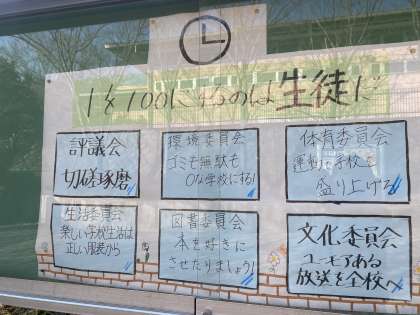 1を100にするのは生徒だ
評議会
切磋琢磨
環境委員会
ゴミも無駄も
0な学校にする!
体育委員会
運動で学校を
盛り上げろ
生活委員会
楽しい学校生活は
正しい服装から
図書委員会
本を好きに
させたりましょう!
文化委員会
ユーモアある
放送を全校へ